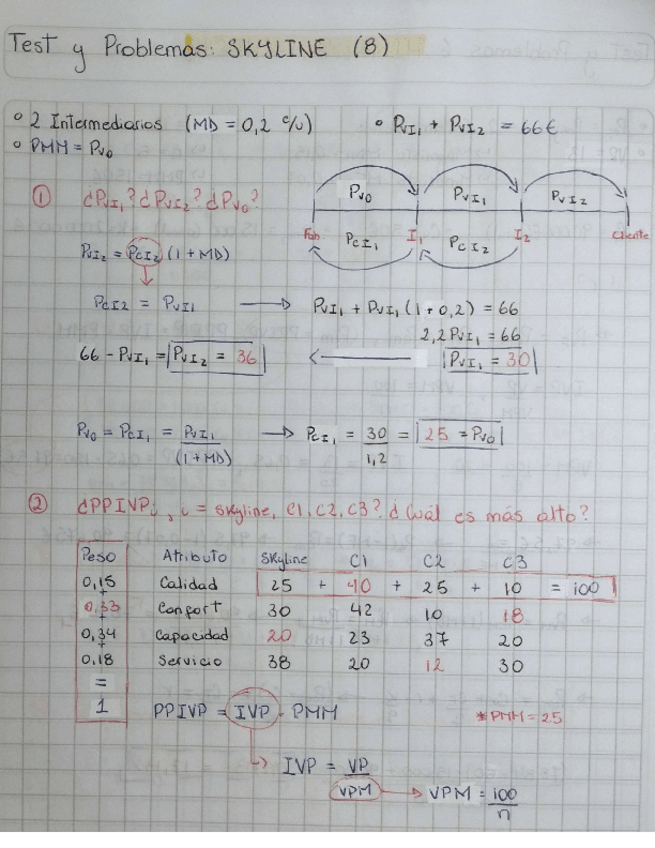 Test y Problemas: SKYLINE (8)
• 2 Intermediarios (MD = 0,2 c/u) • PvI₁ + PvI₂ = 66€
• PMM = Pv₀
① ¿PvI₁? ¿PvI₂? ¿Pv₀?
Pv₀ PvI₁ PvI₂
Fab I₁ I₂ Cliente
PcI₁ PcI₂
PvI₂ = PcI₂ (1 + MD)
PcI2 = PvI1 → PvI₁ + PvI₁ (1 + 0,2) = 66
2,2 PvI₁ = 66
66 - PvI₁ = |PvI₂ = 36| ← |PvI₁ = 30|
Pv₀ = PcI₁ = PvI₁ / (1+MD) → PcI₁ = 30 / 1,2 = |25 = Pv₀|
② ¿PPIVPi, i = skyline, C1, C2, C3? ¿Cuál es más alto?
Peso Atributo Skyline C1 C2 C3
0,15 Calidad 25 + 40 + 25 + 10 = 100
+
0,33 Confort 30 42 10 18
+
0,34 Capacidad 20 23 37 20
+
0,18 Servicio 38 20 12 30
=
1 PPIVP = IVP · PMM *PMM = 25
↳ IVP = VP / VPM → VPM = 100 / n